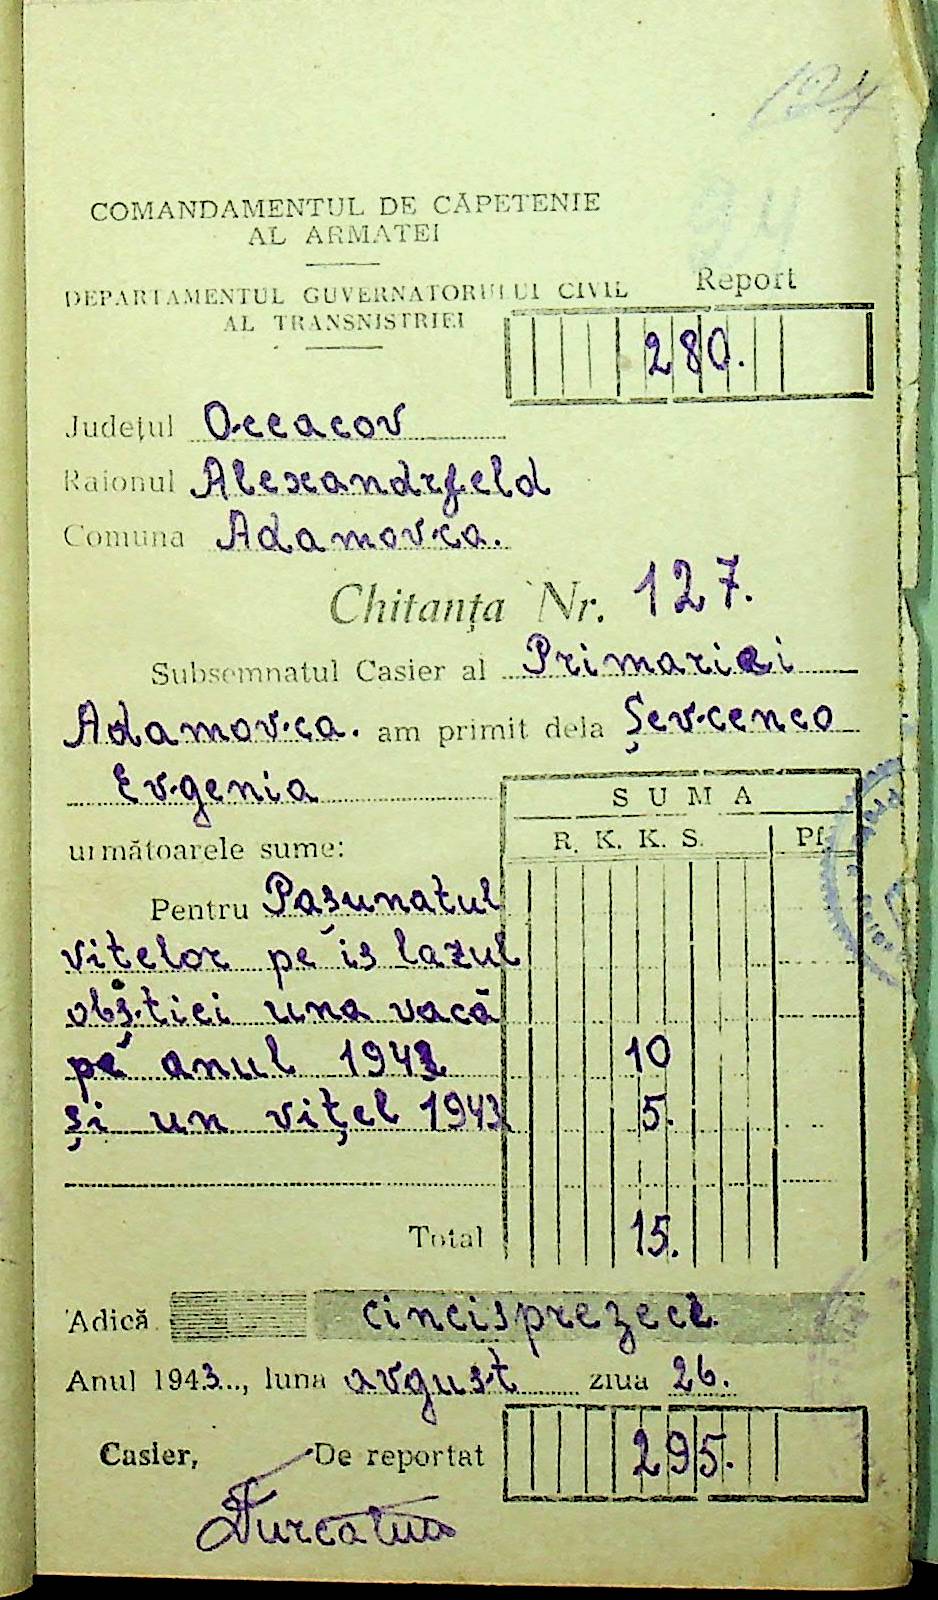 127
94
COMANDAMENTUL DE CĂPETENIE
AL ARMATEI
DEPARTAMENTUL GUVERNATORULUI CIVIL
AL TRANSNISTRIEI
Report
280.
Județul Oceacov
Raionul Alexandrfeld
Comuna Adamovca.
Chitanța Nr. 127.
Subsemnatul Casier al Primariei
Adamovca. am primit dela Șevcenco
Evgenia
următoarele sume:
SUMA
R. K. K. S. Pf.
Pentru Pasunatul
vitelor pe islazul
obștiei una vacă
pe anul 1943 10
și un vițel 1943 5.
Total 15.
Adică cincisprezece.
Anul 1943.., luna avgust ziua 26.
Casier, De reportat 295.